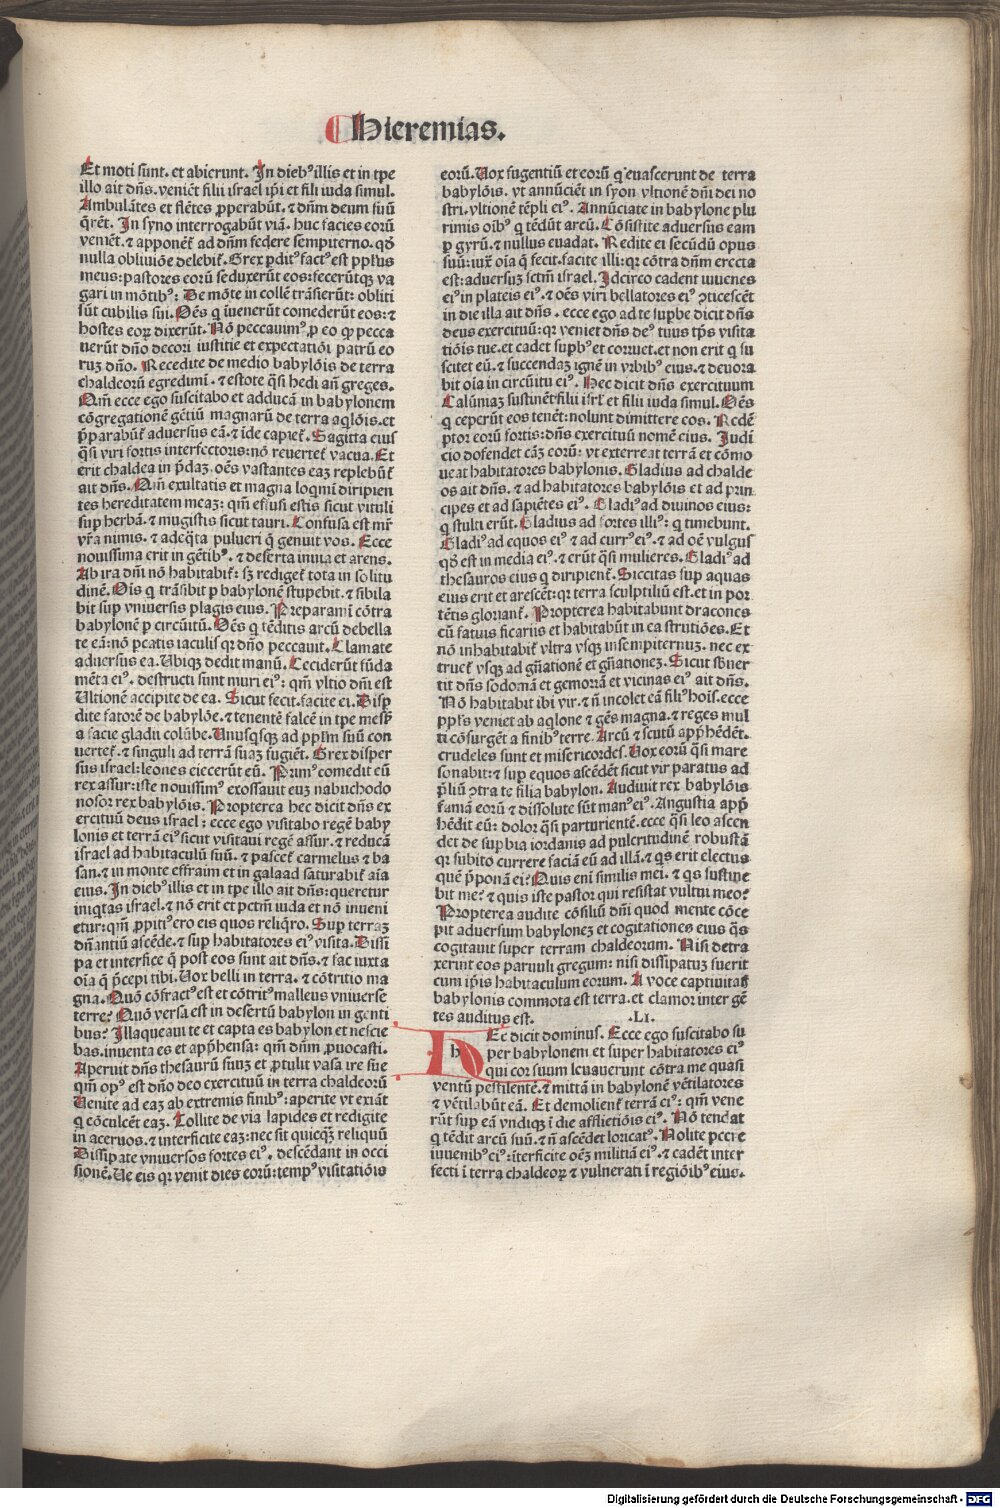 Hieremias.
Et moti sunt. et abierunt. In dieb⁹ illis et in tpe
illo ait dñs. veniẽt filii israel ip̃i et fili iuda simul.
Ambulãtes et flẽtes ꝓperabũt. ⁊ dñm deum suũ
q̃rẽt. In syno interrogabũt viã. huc facies eorũ
veniẽt. ⁊ apponẽt̃ ad dñm federe sempiterno. qđ
nulla obliuiõe delebit̃. Grex ꝑdit⁹ fact⁹ est ppl̃us
meus: pastores eorũ seduxerũt eos: fecerũtqꝫ va
gari in mõtib⁹: De mõte in collẽ trãsierũt: obliti
sũt cubilis sui. Oẽs q̃ iuenerũt comederũt eos: ⁊
hostes eoꝝ dixerũt. Nõ peccauim⁹ ꝓ eo qꝙ pecca
uerũt dño decori iustitie et expectatiõi patrũ eo
ruꝫ dño. Recedite de medio babylõis de terra
chaldeorũ egredimĩ. ⁊ estote q̃si hedi añ greges.
Qm̃ ecce ego suscitabo et adducã in babylonem
cõgregationẽ gẽtiũ magnarũ de terra aq̃lõis. et
p̃parabũt̃ aduersus eã. ⁊ ĩde capiet̃. Sagitta eius
q̃si viri fortis interfectoris: nõ reuertet̃ vacua. Et
erit chaldea in p̃daꝫ. oẽs vastantes eaꝫ replebũt̃
ait dñs. Qm̃ exultatis et magna loq̃mĩ diripien
tes hereditatem meaꝫ: qm̃ effusi estis sicut vituli
sup herbã. ⁊ mugistis sicut tauri. Confusa est mr̃
vr̃a nimis. ⁊ adeq̃ta pulueri q̃ genuit vos. Ecce
nouissima erit in gẽtib⁹. ⁊ deserta inuia et arens.
Ab ira dñi nõ habitabit̃: sꝫ rediget̃ tota in solitu
dinẽ. Oĩs q̃ trãsibit ꝑ babylonẽ stupebit. ⁊ sibila
bit sup vniuersis plagis eius. Preparamĩ cõtra
babylonẽ ꝑ circuitũ. Oẽs q̃ tẽditis arcũ debella
te eã: nõ pcatis iaculis qꝛ dño peccauit. Clamate
aduersus ea. Vbiqꝫ dedit manũ. Ceciderũt fũda
mẽta ei⁹. destructi sunt muri ei⁹: qm̃ vltio dñi est
Vltionẽ accipite de ea. Sicut fecit. facite ei. Disꝑ
dite satorẽ de babylõe. ⁊ tenentẽ falcẽ in tpe mess̃
a facie gladii colũbe. Vnusq̃sqꝫ ad ppl̃m suũ con
uertet̃. ⁊ singuli ad terrã suaꝫ fugiẽt. Grex disper
sus israel: leones eiecerũt eũ. Prim⁹ comedit eũ
rex assur: iste nouissim⁹ exossauit euꝫ nabuchodo
nosor rex babylõis. Propterea hec dicit dñs ex
ercituũ deus israel: ecce ego visitabo regẽ baby
lonis et terrã ei⁹ sicut visitaui regẽ assur. ⁊ reducã
israel ad habitaculũ suũ. ⁊ pascet̃ carmelus ⁊ ba
san. ⁊ in monte effraim et in galaad saturabit̃ aĩa
eius. In dieb⁹ illis et in tpe illo ait dñs: queretur
iniq̃tas israel. ⁊ nõ erit et pctm̃ iuda et nõ inueni
etur: qm̃ ꝓpiti⁹ ero eis quos reliq̃ro. Sup terraꝫ
dñantiũ ascẽde. ⁊ sup habitatores ei⁹ visita. Dissi
pa et interfice q̃ post eos sunt ait dñs. ⁊ fac iuxta
oĩa q̃ p̃cepi tibi. Vox belli in terra. ⁊ cõtritio ma
gna. Quõ cõfract⁹ est et cõtrit⁹ malleus vniuerse
terre? Quõ versa est in desertũ babylon in genti
bus? Illaqueaui te et capta es babylon et nescie
bas. inuenta es et app̃hensa: qm̃ dñm ꝓuocasti.
Aperuit dñs thesaurũ suuꝫ et ꝓtulit vasa ire sue
qm̃ op⁹ est dño deo exercituũ in terra chaldeorũ
Venite ad eaꝫ ab extremis finib⁹: aperite vt exiãt
q̃ cõculcẽt eaꝫ. Tollite de via lapides et redigite
in aceruos. ⁊ interficite eaꝫ: nec sit quicqꝫ reliquũ
Dissipate vniuersos fortes ei⁹. descẽdant in occi
sionẽ. Ve eis qꝛ venit dies eorũ: temp⁹ visitatiõis
eorũ. Vox fugentiũ et eorũ q̃ euaserunt de terra
babylõis. vt annũciẽt in syon vltionẽ dñi dei no
stri. vltionẽ tẽpli ei⁹. Annũciate in babylone plu
rimis oĩb⁹ q̃ tẽdũt arcũ. Cõsistite aduersus eam
ꝑ gyrũ. ⁊ nullus euadat. Redite ei secũdũ opus
suũ: iux̃ oĩa q̃ fecit. facite illi: qꝛ cõtra dñm erecta
est: aduersuꝫ sctm̃ israel. Idcirco cadent iuuenes
ei⁹ in plateis ei⁹. ⁊ oẽs viri bellatores ei⁹ ꝯticescẽt
in die illa ait dñs. ecce ego ad te supbe dicit dñs
deus exercituũ: qꝛ veniet dñs de⁹ tuus tp̃s visita
tiõis tue. et cadet supb⁹ et corruet. et non erit q̃ su
scitet eũ. ⁊ succendaꝫ ignẽ in vrbib⁹ eius. ⁊ deuora
bit oĩa in circũitu ei⁹. Hec dicit dñs exercituum
Calũniaꝫ sustinẽt filii isrl̃ et filii iuda simul. Oẽs
q̃ ceperũt eos tenẽt: nolunt dimittere eos. Redẽ
ptor eorũ fortis: dñs exercituũ nomẽ eius. Iudi
cio dofendet cãꝫ eorũ: vt exterreat terrã et cõmo
ueat habitatores babylonis. Gladius ad chalde
os ait dñs. ⁊ ad habitatores babylõis et ad prin
cipes et ad sapiẽtes ei⁹. Gladi⁹ ad diuinos eius:
q̃ stulti erũt. Gladius ad fortes illi⁹: q̃ timebunt.
Gladi⁹ ad equos ei⁹ ⁊ ad curr⁹ ei⁹. ⁊ ad oẽ vulgus
qđ est in media ei⁹. ⁊ erũt q̃si mulieres. Gladi⁹ ad
thesauros eius q̃ diripient̃. Siccitas sup aquas
eius erit et arescẽt: qꝛ terra sculptiliũ est. et in por
tẽtis gloriant̃. Propterea habitabunt dracones
cũ fatuis ficariis et habitabũt in ea strutiões. Et
nõ inhabitabit̃ vltra vsqꝫ in sempiternuꝫ. nec ex
truet̃ vsqꝫ ad gñationẽ et gñationeꝫ. Sicut sb̃uer
tit dñs sodomã et gemorrã et vicinas ei⁹ ait dñs.
Nõ habitabit ibi vir. ⁊ ñ incolet eã fili⁹ hoĩs. ecce
ppl̃s veniet ab aq̃lone ⁊ gẽs magna. ⁊ reges mul
ti cõsurgẽt a finib⁹ terre. Arcũ ⁊ scutũ app̃hẽdẽt.
crudeles sunt et misericordes. Vox eorũ q̃si mare
sonabit: ⁊ sup equos ascẽdẽt sicut vir paratus ad
p̃liũ ꝯtra te filia babylon. Audiuit rex babylõis
famã eorũ ⁊ dissolute sũt man⁹ ei⁹. Angustia app̃
hẽdit eũ: dolor q̃si parturientẽ. ecce q̃si leo ascen
det de supbia iordanis ad pulcritudinẽ robustã
qꝛ subito currere faciã eũ ad illã. ⁊ q̃s erit electus
quẽ p̃ponã ei? Quis eni similis mei. ⁊ q̃s sustine
bit me? ⁊ quis iste pastor qui resistat vultui meo?
Propterea audite cõsiliũ dñi quod mente cõce
pit aduersum babyloneꝫ et cogitationes eius q̃s
cogitauit super terram chaldeorum. Nisi detra
xerint eos paruuli gregum: nisi dissipatuꝫ fuerit
cum ip̃is habitaculum eorum. A voce captiuitatis
babylonis commota est terra. et clamor inter gẽ
tes auditus est. .LI.
HEc dicit dominus. Ecce ego suscitabo su
per babylonem et super habitatores ei⁹
qui cor suum leuauerunt cõtra me quasi
ventũ pestilentẽ. ⁊ mittã in babylonẽ vẽtilatores
⁊ vẽtilabũt eã. Et demolient̃ terrã ei⁹: qm̃ vene
rũt sup eã vndiqꝫ ĩ die afflictiõis ei⁹. Nõ tendat
q̃ tẽdit arcũ suũ. ⁊ ñ ascẽdet loricat⁹. Nolite pcere
iuuenib⁹ ei⁹: ĩterficite oẽꝫ militiã ei⁹. ⁊ cadẽt inter
fecti ĩ terra chaldeoꝝ ⁊ vulnerati ĩ regiõib⁹ eius.
Digitalisierung gefördert durch die Deutsche Forschungsgemeinschaft - DFG